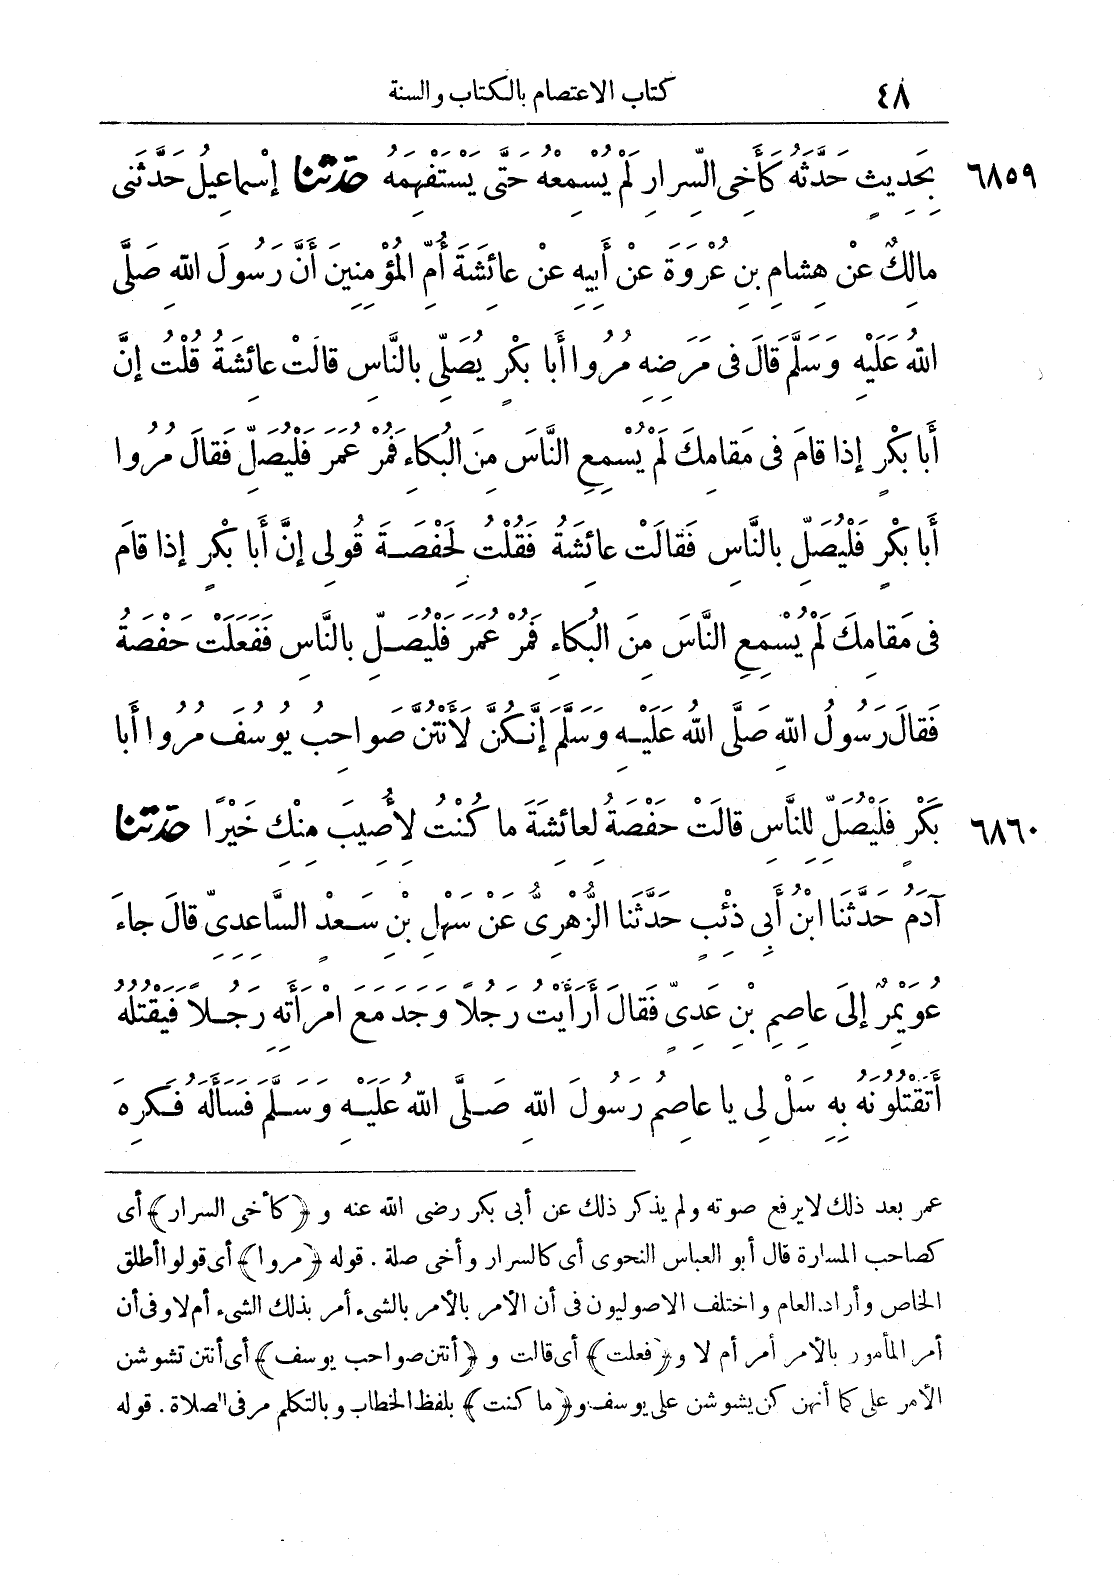 ٤٨ كتاب الاعتصام بالكتاب والسنة
٦٨٥٩ بِحَدِيثٍ حَدَّثَهُ كَأَخِى السِّرَارِ لَمْ يُسْمِعْهُ حَتَّى يَسْتَفْهِمَهُ حَدَّثَنَا إِسْمَاعِيلُ حَدَّثَنِى
مالِكٌ عَنْ هِشامِ بنِ عُرْوَةَ عنْ أَبِيهِ عنْ عائِشَةَ أُمِّ المُؤْمِنِينَ أَنَّ رَسُولَ اللهِ صَلَّى
اللهُ عَلَيْهِ وَسَلَّمَ قَالَ فى مَرَضِهِ مُرُوا أَبا بَكْرٍ يُصَلِّى بالنَّاسِ قالَتْ عائِشَةُ قُلْتُ إنَّ
أَبا بَكْرٍ إذا قامَ فى مَقامِكَ لَمْ يُسْمِعِ النَّاسَ مِنَ البُكاءِ فَمُرْ عُمَرَ فَلْيُصَلِّ فَقالَ مُرُوا
أَبا بَكْرٍ فَلْيُصَلِّ بالنَّاسِ فَقالَتْ عائِشَةُ فَقُلْتُ لِحَفْصَةَ قُولِى إنَّ أَبا بَكْرٍ إذا قامَ
فى مَقامِكَ لَمْ يُسْمِعِ النَّاسَ مِنَ البُكاءِ فَمُرْ عُمَرَ فَلْيُصَلِّ بالنَّاسِ فَفَعَلَتْ حَفْصَةُ
فَقالَ رَسُولُ اللهِ صَلَّى اللهُ عَلَيْهِ وَسَلَّمَ إنَّكُنَّ لَأَنْتُنَّ صَواحِبُ يُوسُفَ مُرُوا أَبا
٦٨٦٠ بَكْرٍ فَلْيُصَلِّ لِلنَّاسِ قالَتْ حَفْصَةُ لِعائِشَةَ ما كُنْتُ لِأُصِيبَ مِنْكِ خَيْرًا حَدَّثَنَا
آدَمُ حَدَّثَنا ابْنُ أَبِى ذِئْبٍ حَدَّثَنا الزُّهْرِىُّ عَنْ سَهْلِ بْنِ سَعْدٍ السَّاعِدِىِّ قالَ جاءَ
عُوَيْمِرٌ إلَى عاصِمِ بْنِ عَدِىٍّ فَقالَ أَرَأَيْتَ رَجُلًا وَجَدَ مَعَ امْرَأَتِهِ رَجُلًا فَيَقْتُلُهُ
أَتَقْتُلُونَهُ بِهِ سَلْ لِى يا عاصِمُ رَسُولَ اللهِ صَلَّى اللهُ عَلَيْهِ وَسَلَّمَ فَسَأَلَهُ فَكَرِهَ
عمر بعد ذلك لا يرفع صوته ولم يذكر ذلك عن أبى بكر رضى الله عنه و ﴿كأخى السرار﴾ أى
كصاحب المسارة قال أبو العباس النحوى أى كالسرار وأخى صلة . قوله ﴿مروا﴾ أى قولوا أطلق
الخاص وأراد العام واختلف الاصوليون فى أن الأمر بالأمر بالشىء أمر بذلك الشىء أم لا وفى أن
أمر المأمور بالأمر أمر أم لا و﴿فعلت﴾ أى قالت و ﴿أنتن صواحب يوسف﴾ أى أنتن تشوشن
الأمر على كما أنهن كن يشوشن على يوسف و﴿ما كنت﴾ بلفظ الخطاب وبالتكلم مر فى الصلاة . قوله